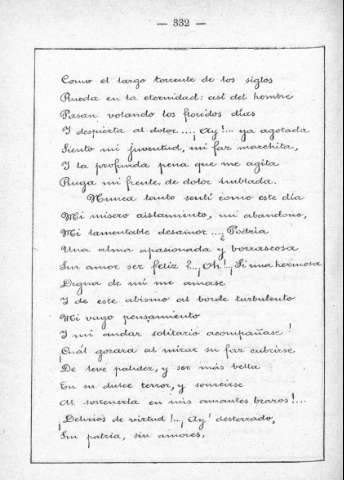 — 332 —
Como el largo torrente de los siglos
Rueda en la eternidad: así del hombre
Pasan volando los floridos días
I despierta al dolor ...¡ Ay!... ya agotada
Siento mi juventud, mi faz marchita,
I la profunda pena que me agita
Ruga mi frente de dolor nublada.
Nunca tanto sentí como este día
Mi mísero aislamiento, mi abandono,
Mi lamentable desamor ...¿ Podría
Una alma apasionada y borrascosa
Sin amor ser feliz ?...¡ Oh!...¡ Si una hermosa
Digna de mí me amase
I de este abismo al borde turbulento
Mi vago pensamiento
I mi andar solitario acompañase!
¡Cuál gozara al mirar su faz cubrirse
De leve palidez, y ser más bella
En su dulce terror, y sonreirse
Al sostenerla en mis amantes brazos!...
¡Delirios de virtud!...¡ Ay! desterrado,
Sin patria, sin amores,